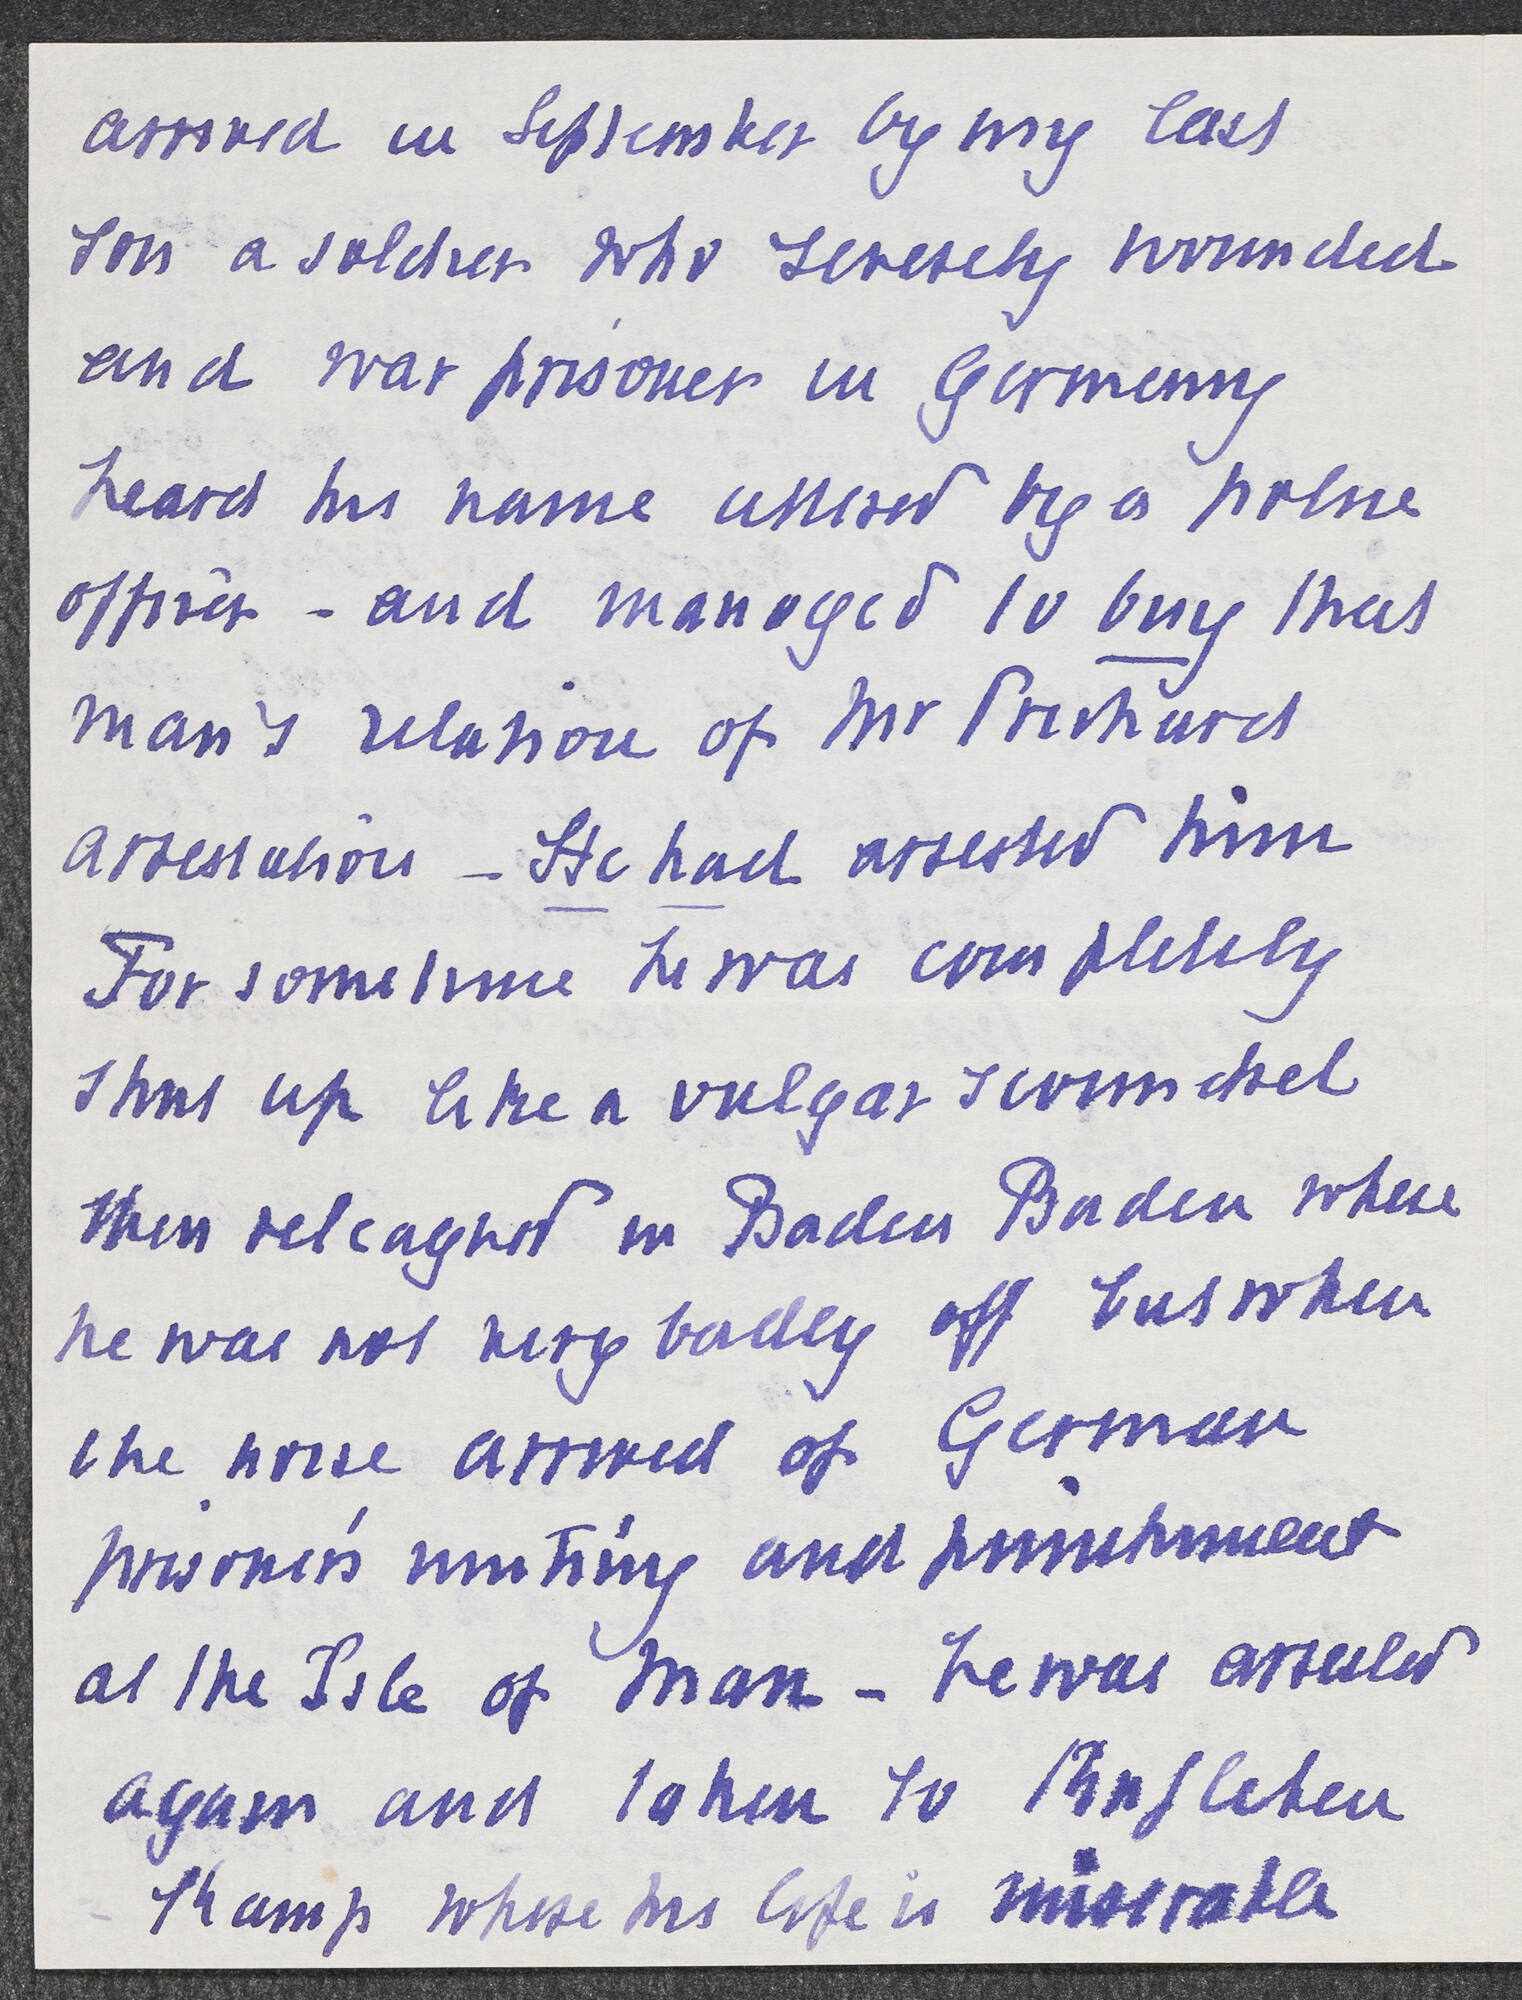 arrived in September by my last
son a soldier who severely wounded
and war prisoner in Germany
heard his name uttered by a police
officer - and managed to buy that
man's relation of Mr Prichard
arrestation - He had arrested him
For some time he was completely
shut up like a vulgar scoundrel
then releagued in Baden Baden where
he was not very badly off but when
the noise arrived of German
prisoner's mutiny and punishment
at the Isle of Man - he was arrested
again and taken to
Kamp where his life is miserable